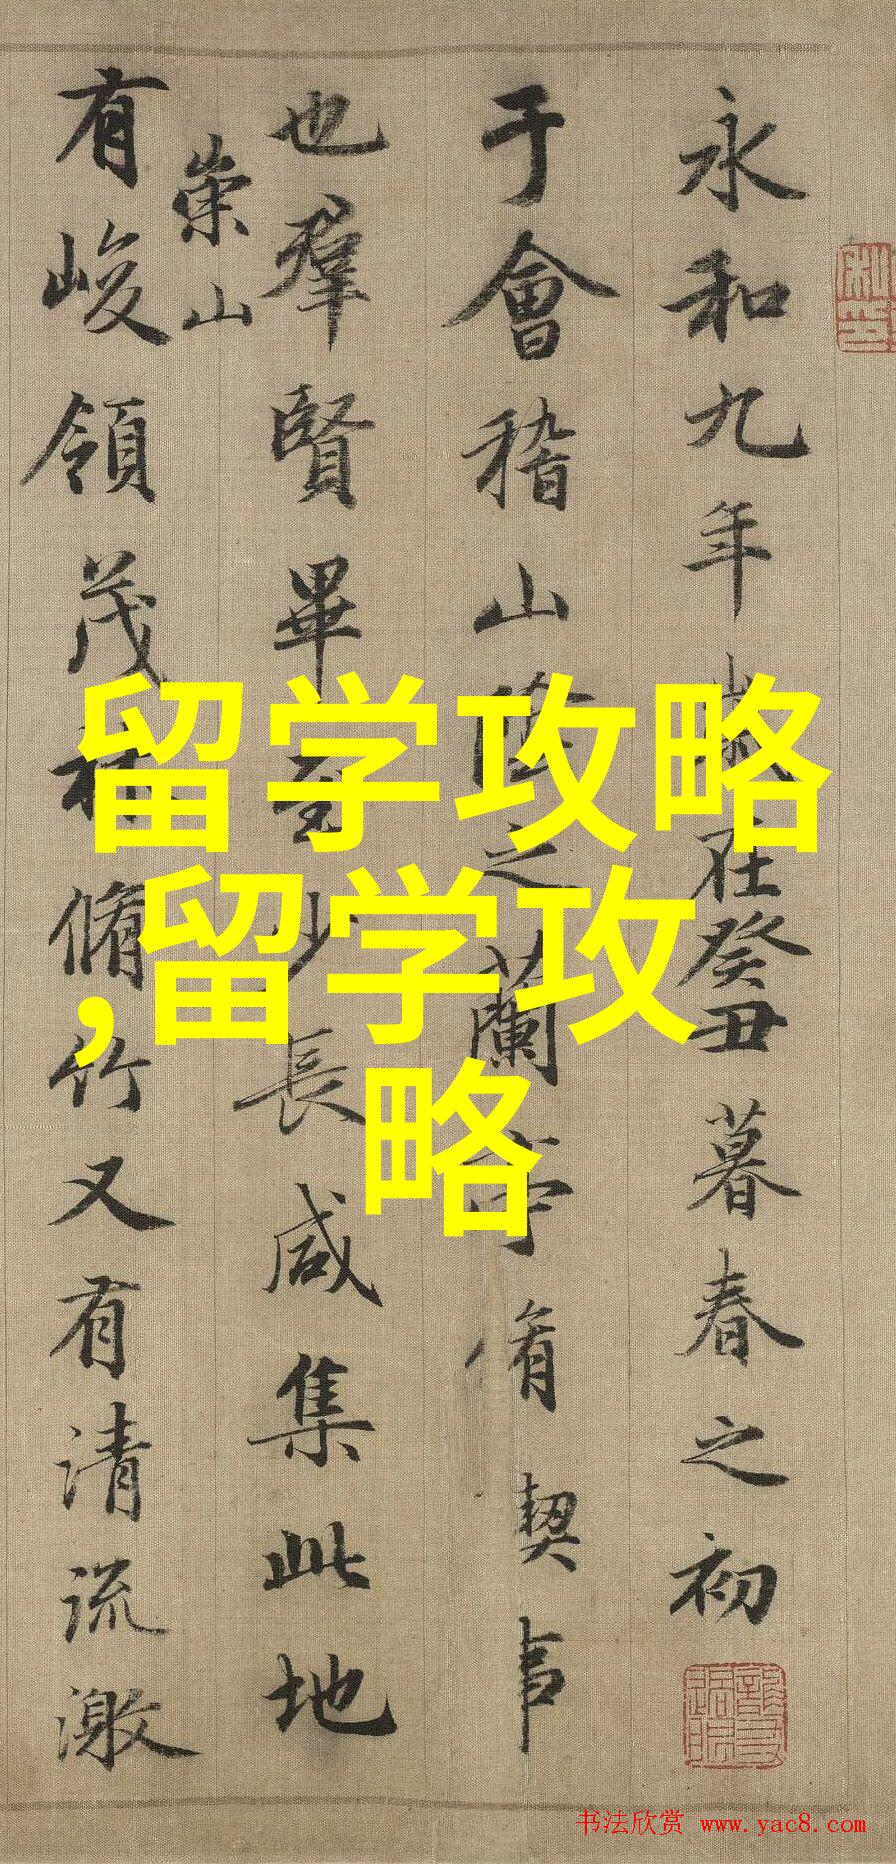 永和九年歲在癸丑暮春之初
于會稽山陰之蘭亭脩契事
也羣賢畢至少長咸集此地
崇山
有峻領茂林脩竹又有清流激
留学攻略
,留学攻
略
书法欣赏 www.yac8.com